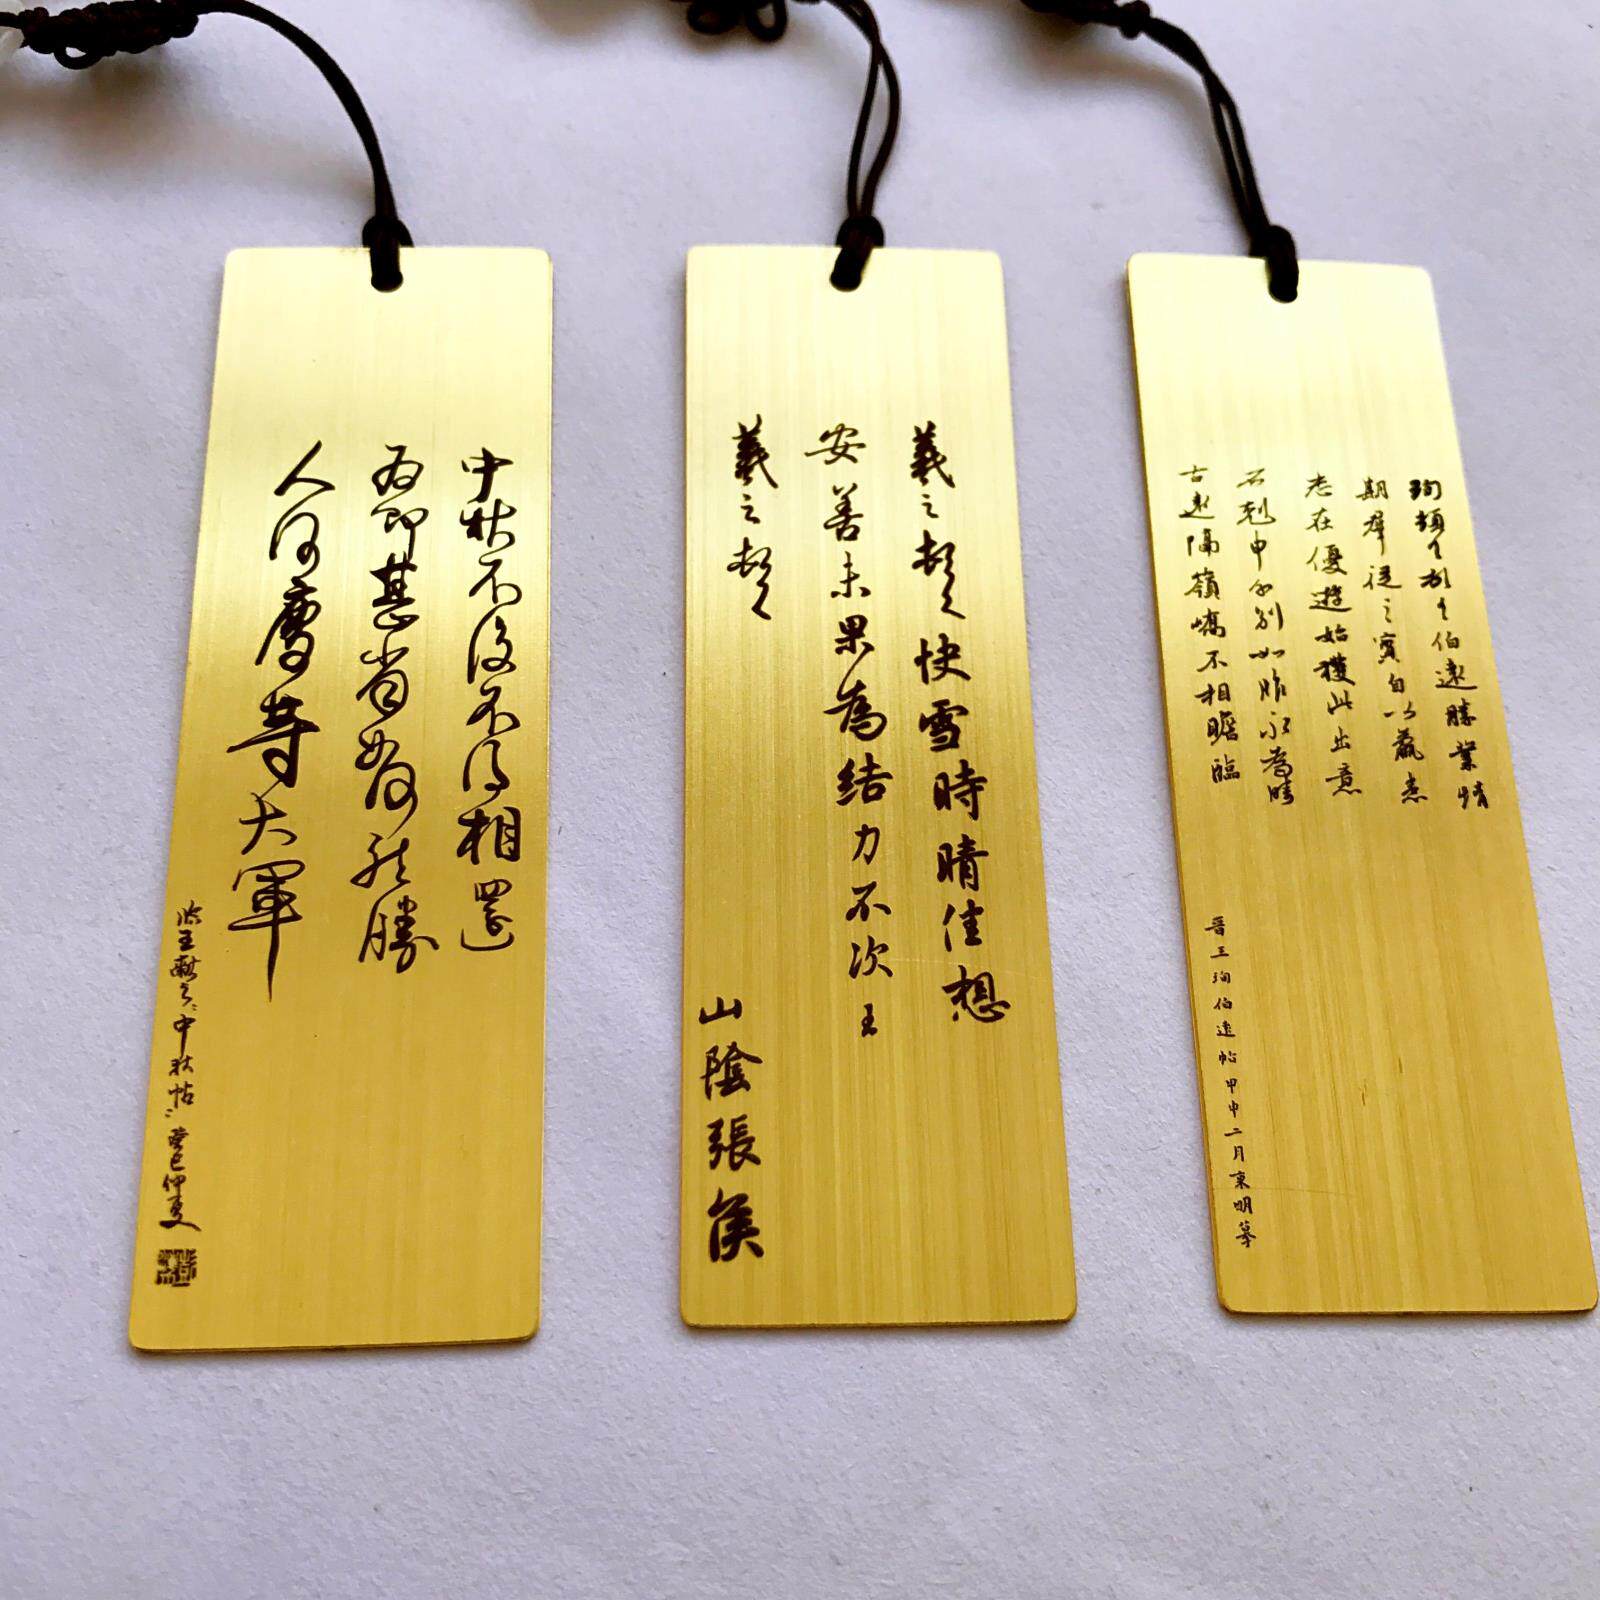 中秋不復不得相還
為即甚省如何然勝
人何慶等大軍
临王献之“中秋帖”癸巳仲夏
羲之頓首快雪時晴佳想
安善未果為結力不次王
羲之頓首
山陰張侯
珣頓首頓首伯遠勝業情
期羣從之寶自以羸患
志在優遊始獲此出意
不剋申分別如昨永為疇
古遠隔嶺嶠不相瞻臨
晋王珣伯遠帖甲申二月東明摹